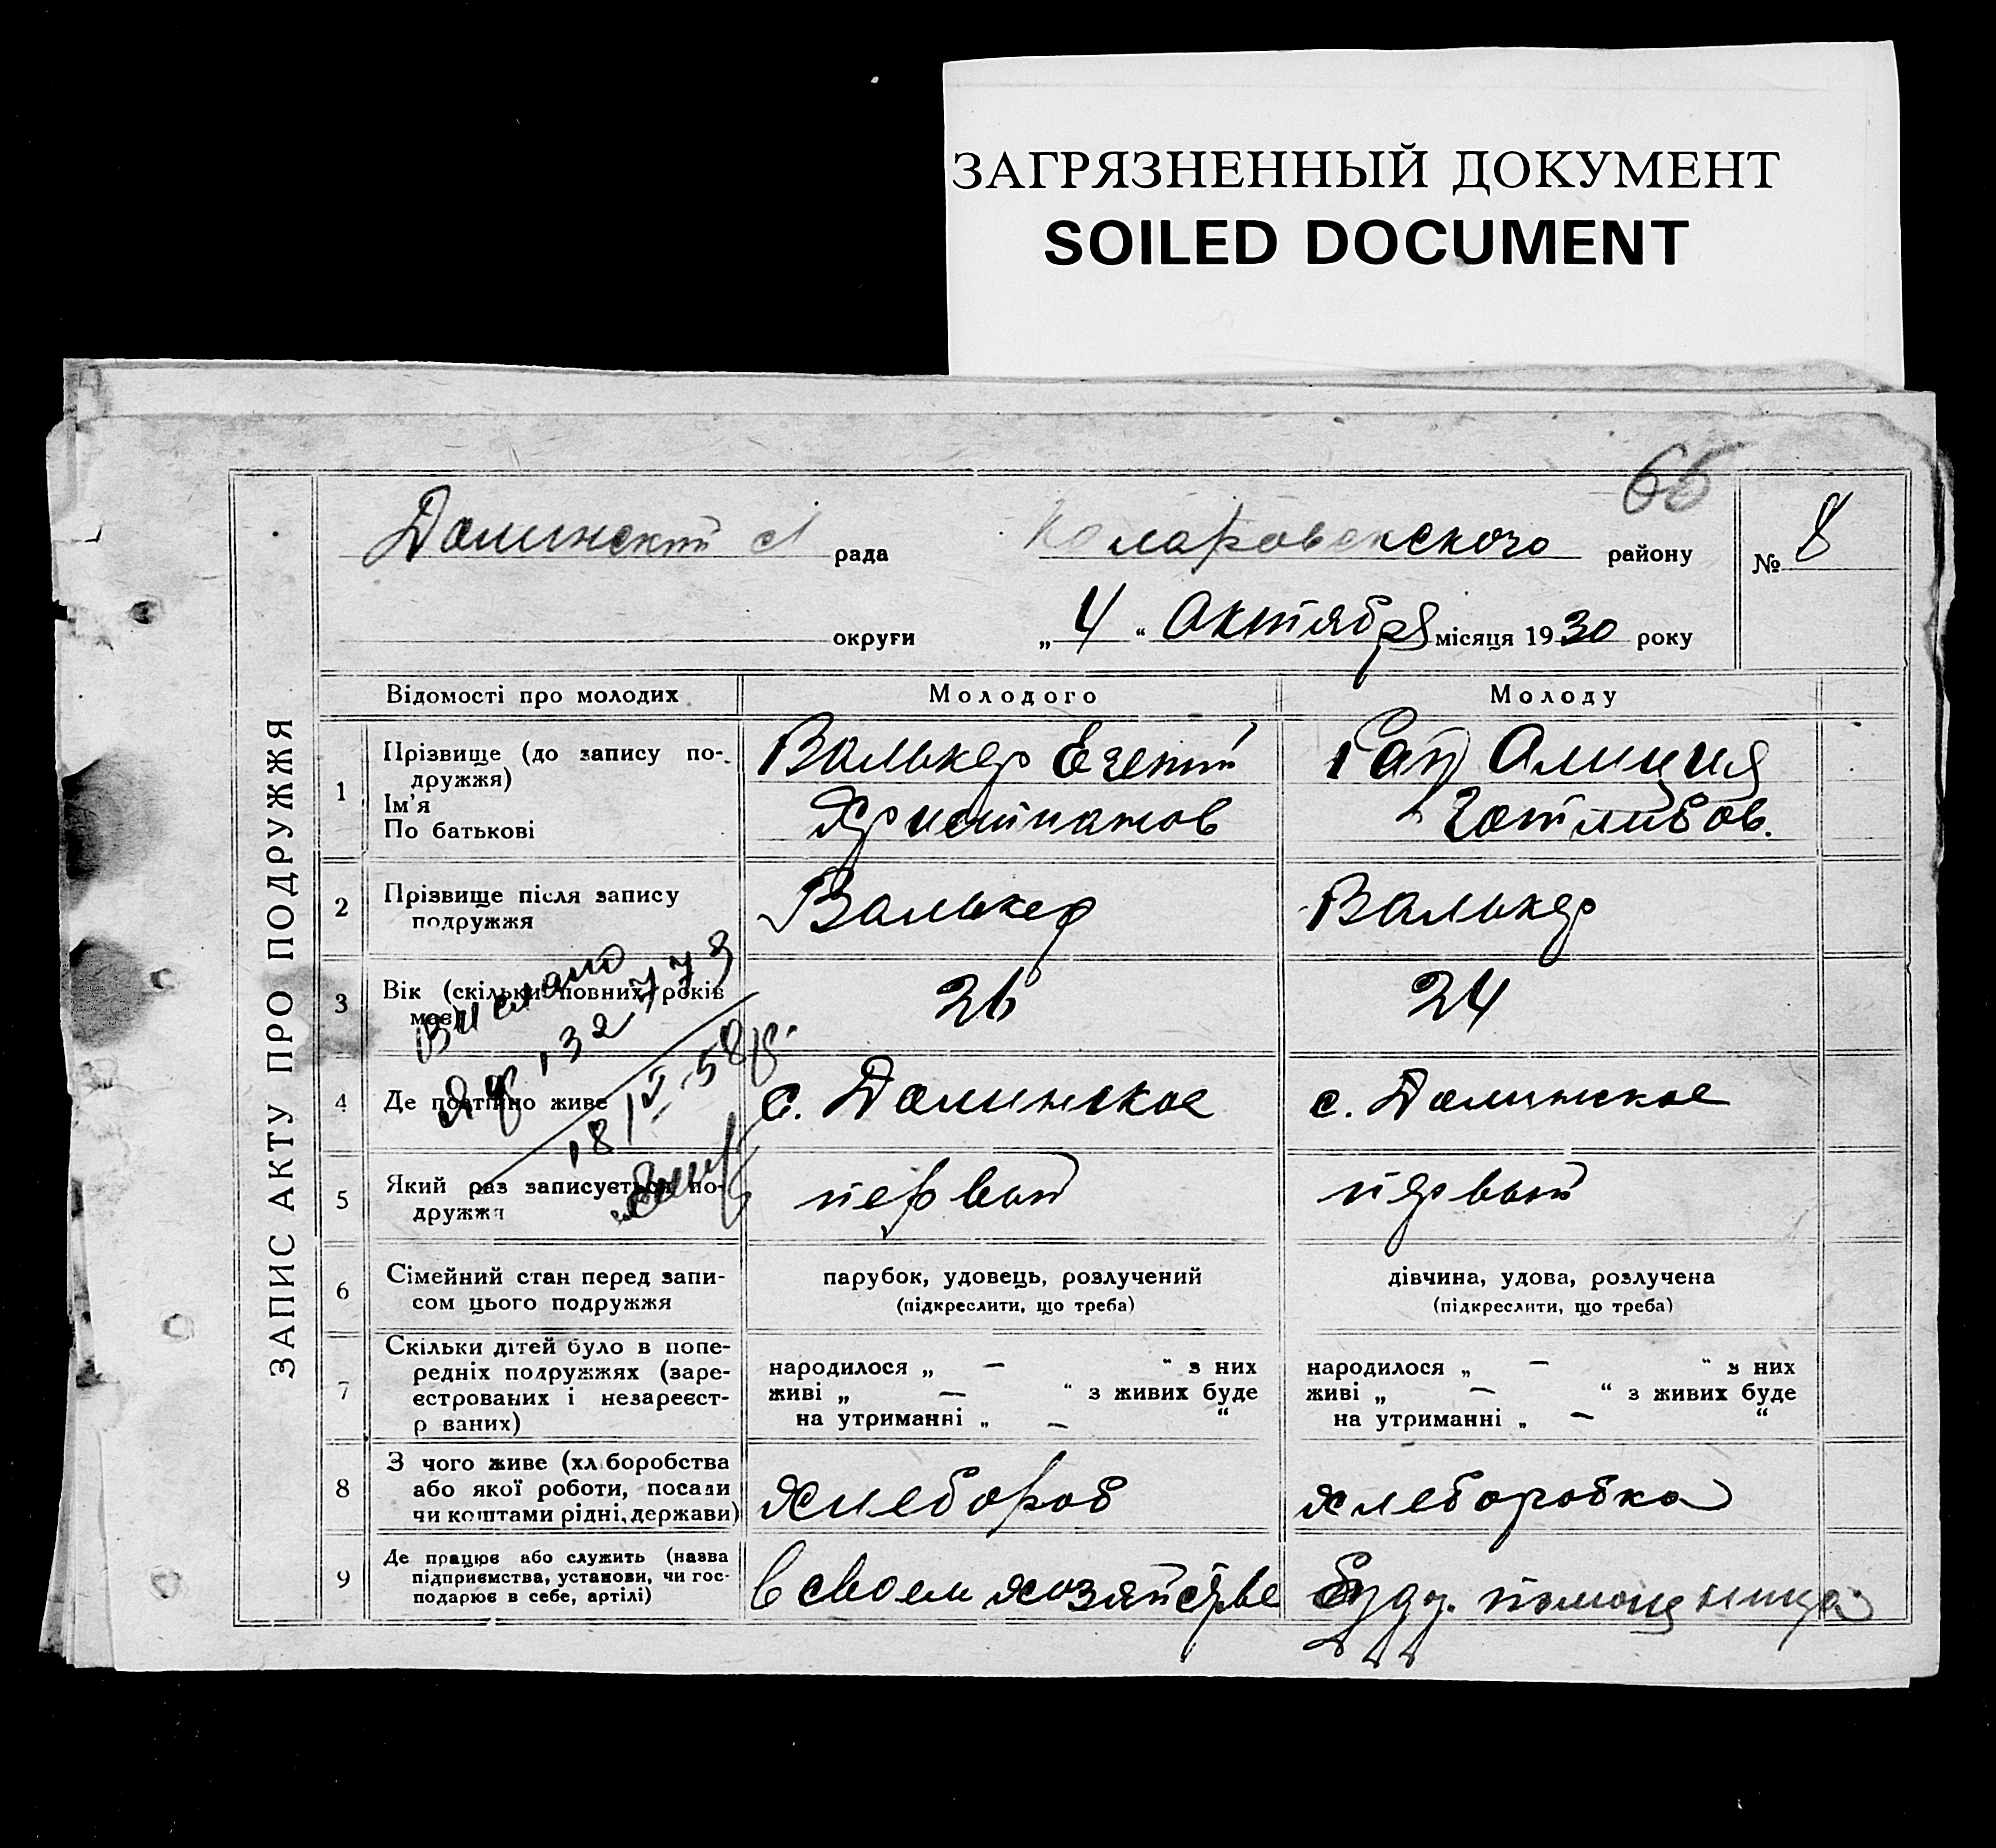 ЗАГРЯЗНЕННЫЙ ДОКУМЕНТ
SOILED DOCUMENT
66
Долинский с/ рада Коларовского району № 8
округи „ 4 “ Октября місяця 1930 року
ЗАПИС АКТУ ПРО ПОДРУЖЖЯ
Відомості про молодих Молодого Молоду
1 Прізвище (до запису по-
дружжя)
Ім'я
По батькові
Валькер Егений
Християнов
Рап Алиция
Готлибов.
2 Прізвище після запису
подружжя
Валькер Валькер
3 Вік (скільки повних років
має)
26 24
Вислано
132778
18/V-58р.
4 Де постійно живе с. Долинское с. Долинское
5 Який раз записується по-
дружжя
первый первый
6 Сімейний стан перед запи-
сом цього подружжя
парубок, удовець, розлучений
(підкреслити, що треба)
дівчина, удова, розлучена
(підкреслити, що треба)
7 Скільки дітей було в попе-
редніх подружжях (заре-
єстрованих і незареєст-
р ваних)
народилося „ — “ з них
живі „ — “ з живих буде
на утриманні „ — “
народилося „ — “ з них
живі „ — “ з живих буде
на утриманні „ — “
8 З чого живе (хліборобства
або якої роботи, посади
чи коштами рідні, держави)
хлебороб хлеборобка
9 Де працює або служить (назва
підприємства, установи, чи гос-
подарює в себе, артілі)
в своем хозяйстве Будд. помощница